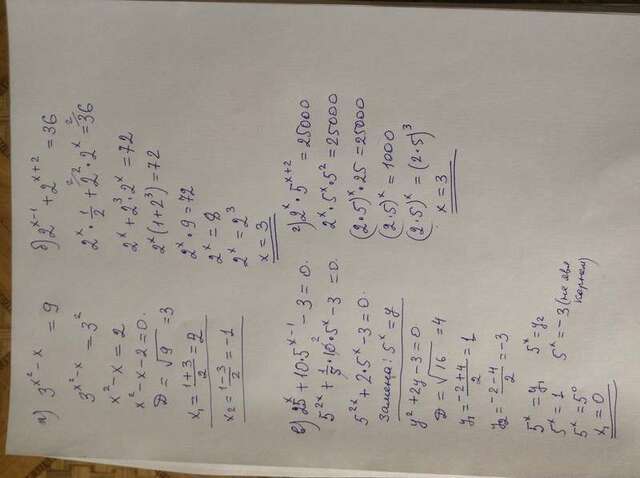 а) 3^(x²-x) = 9
3^(x²-x) = 3²
x²-x = 2
x²-x-2=0.
D = √9 = 3
x₁ = (1+3)/2 = 2
x₂ = (1-3)/2 = -1
б) 2^(x-1) + 2^(x+2) = 36
2^x · 1/2 + 2² · 2^x = 36
2^x + 2³ · 2^x = 72
2^x (1+2³) = 72
2^x · 9 = 72
2^x = 8
2^x = 2³
x = 3
в) 25^x + 10·5^(x-1) - 3 = 0.
5^(2x) + 1/5 · 10 · 5^x - 3 = 0.
5^(2x) + 2·5^x - 3 = 0.
Замена: 5^x = y
y² + 2y - 3 = 0
D = √16 = 4
y₁ = (-2+4)/2 = 1
y₂ = (-2-4)/2 = -3
5^x = y₁ 5^x = y₂
5^x = 1 5^x = -3 (не явл
5^x = 5⁰ корнем)
x₁ = 0
г) 2^x · 5^(x+2) = 25000
2^x · 5^x · 5² = 25000
(2·5)^x · 25 = 25000
(2·5)^x = 1000
(2·5)^x = (2·5)³
x = 3